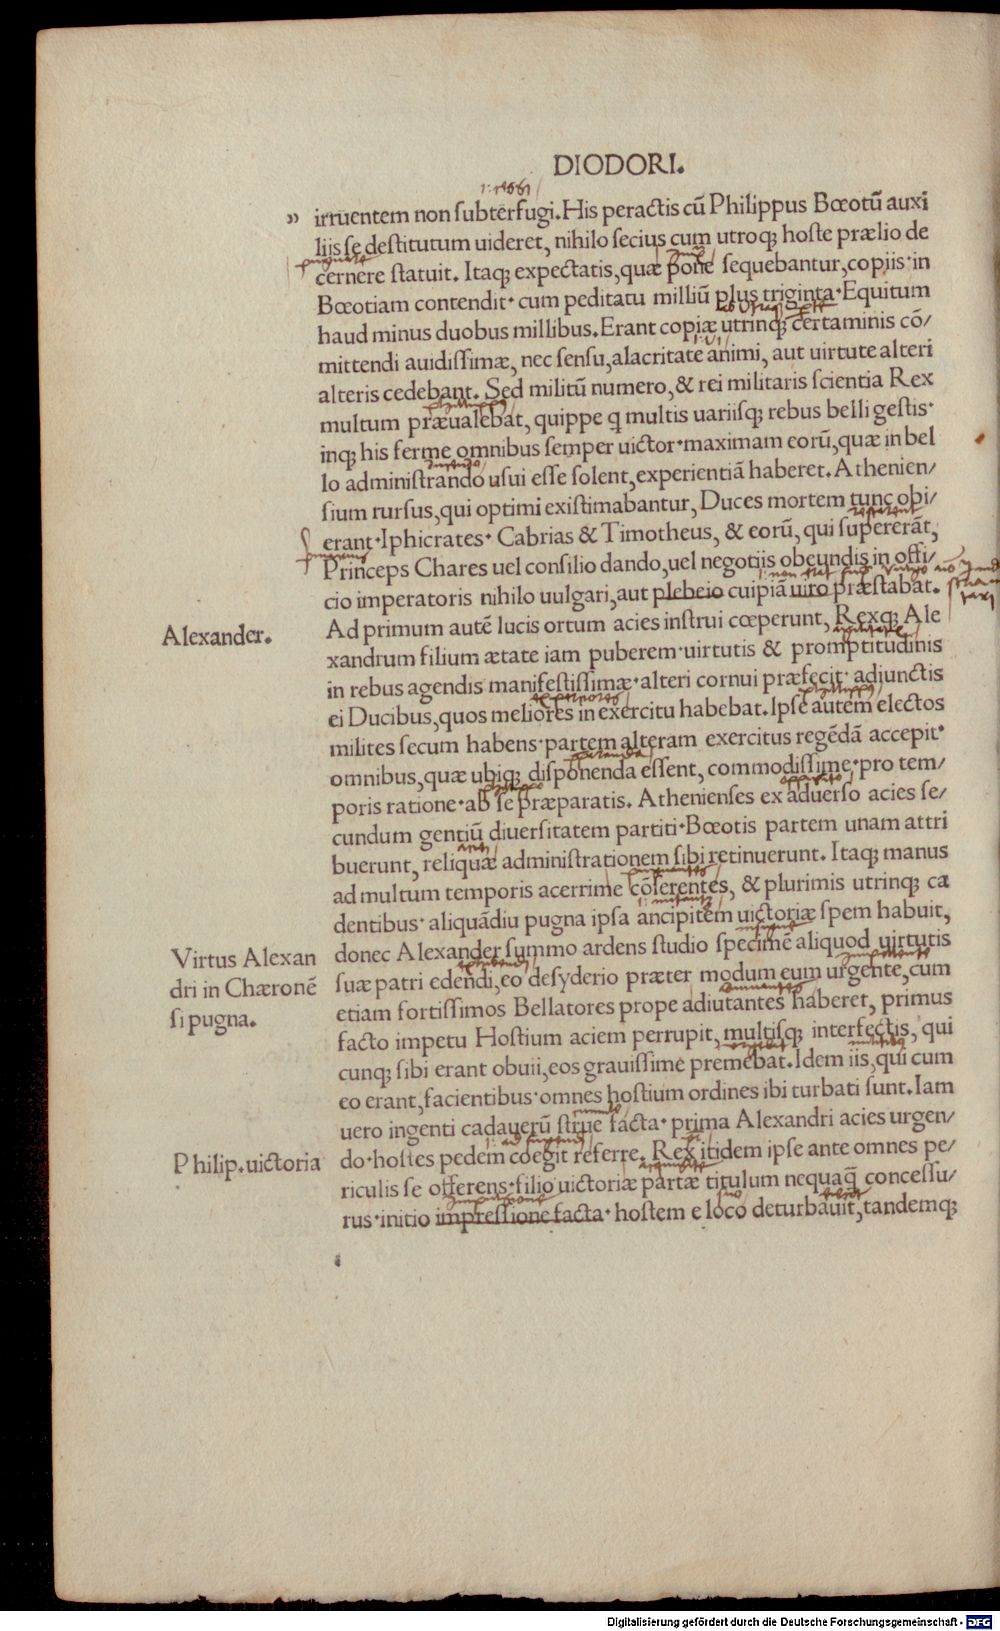 DIODORI.
„ irruentem non subterfugi. His peractis cū Philippus Bœotū auxi
liis se destitutum uideret, nihilo secius cum utroqꝫ hoste prælio de
cernere statuit. Itaqꝫ expectatis, quæ pone sequebantur, copiis·in
Bœotiam contendit· cum peditatu milliū plus triginta·Equitum
haud minus duobus millibus. Erant copiæ utrinqꝫ certaminis cō/
mittendi auidissimæ, nec sensu, alacritate animi, aut uirtute alteri
alteris cedebant. Sed militū numero, & rei militaris scientia Rex
multum præualebat, quippe q multis uariisqꝫ rebus belli gestis·
inqꝫ his ferme omnibus semper uictor·maximam eorū, quæ in bel
lo administrando usui esse solent, experientiā haberet. Athenien/
sium rursus, qui optimi existimabantur, Duces mortem tunc obi/
erant·Iphicrates· Cabrias & Timotheus, & eorū, qui supererāt,
Princeps Chares uel consilio dando, uel negotiis obeundis in offi/
cio imperatoris nihilo uulgari, aut plebeio cuipiā uiro præstabat.
Alexander.
Ad primum autē lucis ortum acies instrui cœperunt, Rexqꝫ Ale
xandrum filium ætate iam puberem·uirtutis & promptitudinis
in rebus agendis manifestissimæ·alteri cornui præfecit· adiunctis
ei Ducibus, quos meliores in exercitu habebat. Ipse autem electos
milites secum habens·partem alteram exercitus regēdā accepit·
omnibus, quæ ubiqꝫ disponenda essent, commodissime·pro tem/
poris ratione·ab se præparatis. Athenienses ex aduerso acies se/
cundum gentiū diuersitatem partiti·Bœotis partem unam attri
buerunt, reliquæ administrationem sibi retinuerunt. Itaqꝫ manus
ad multum temporis acerrime cōserentes, & plurimis utrinqꝫ ca
dentibus· aliquādiu pugna ipsa ancipitem uictoriæ spem habuit,
Virtus Alexan
dri in Chæronē
si pugna.
donec Alexander summo ardens studio specimē aliquod uirtutis
suæ patri edendi, eo desyderio præter modum eum urgente, cum
etiam fortissimos Bellatores prope adiutantes haberet, primus
facto impetu Hostium aciem perrupit, multisqꝫ interfectis, qui
cunqꝫ sibi erant obuii, eos grauissime premebat. Idem iis, qui cum
eo erant, facientibus·omnes hostium ordines ibi turbati sunt. Iam
uero ingenti cadauerū strue facta· prima Alexandri acies urgen/
Philip. uictoria
do·hostes pedem coegit referre. Rex itidem ipse ante omnes pe/
riculis se offerens·filio uictoriæ partæ titulum nequaq̄ concessu/
rus·initio impressione facta· hostem e loco deturbauit, tandemqꝫ
Digitalisierung gefördert durch die Deutsche Forschungsgemeinschaft - DFG